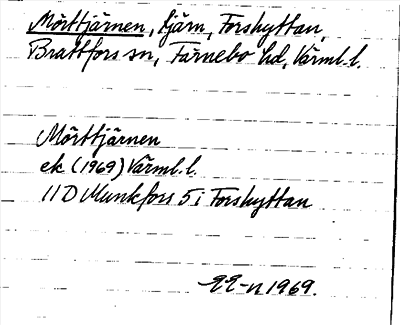 Mörttjärnen, tjärn, Forshyttan,
Brattfors sn, Färnebo hd, Värml. l.
Mörttjärnen
ek (1969) Värml. l.
11D Munkfors 5i Forshyttan
1969.